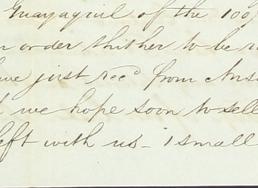 Guayaquil of the 100
order thither to be
just recd from
we hope soon to sell
left with us - 1 small